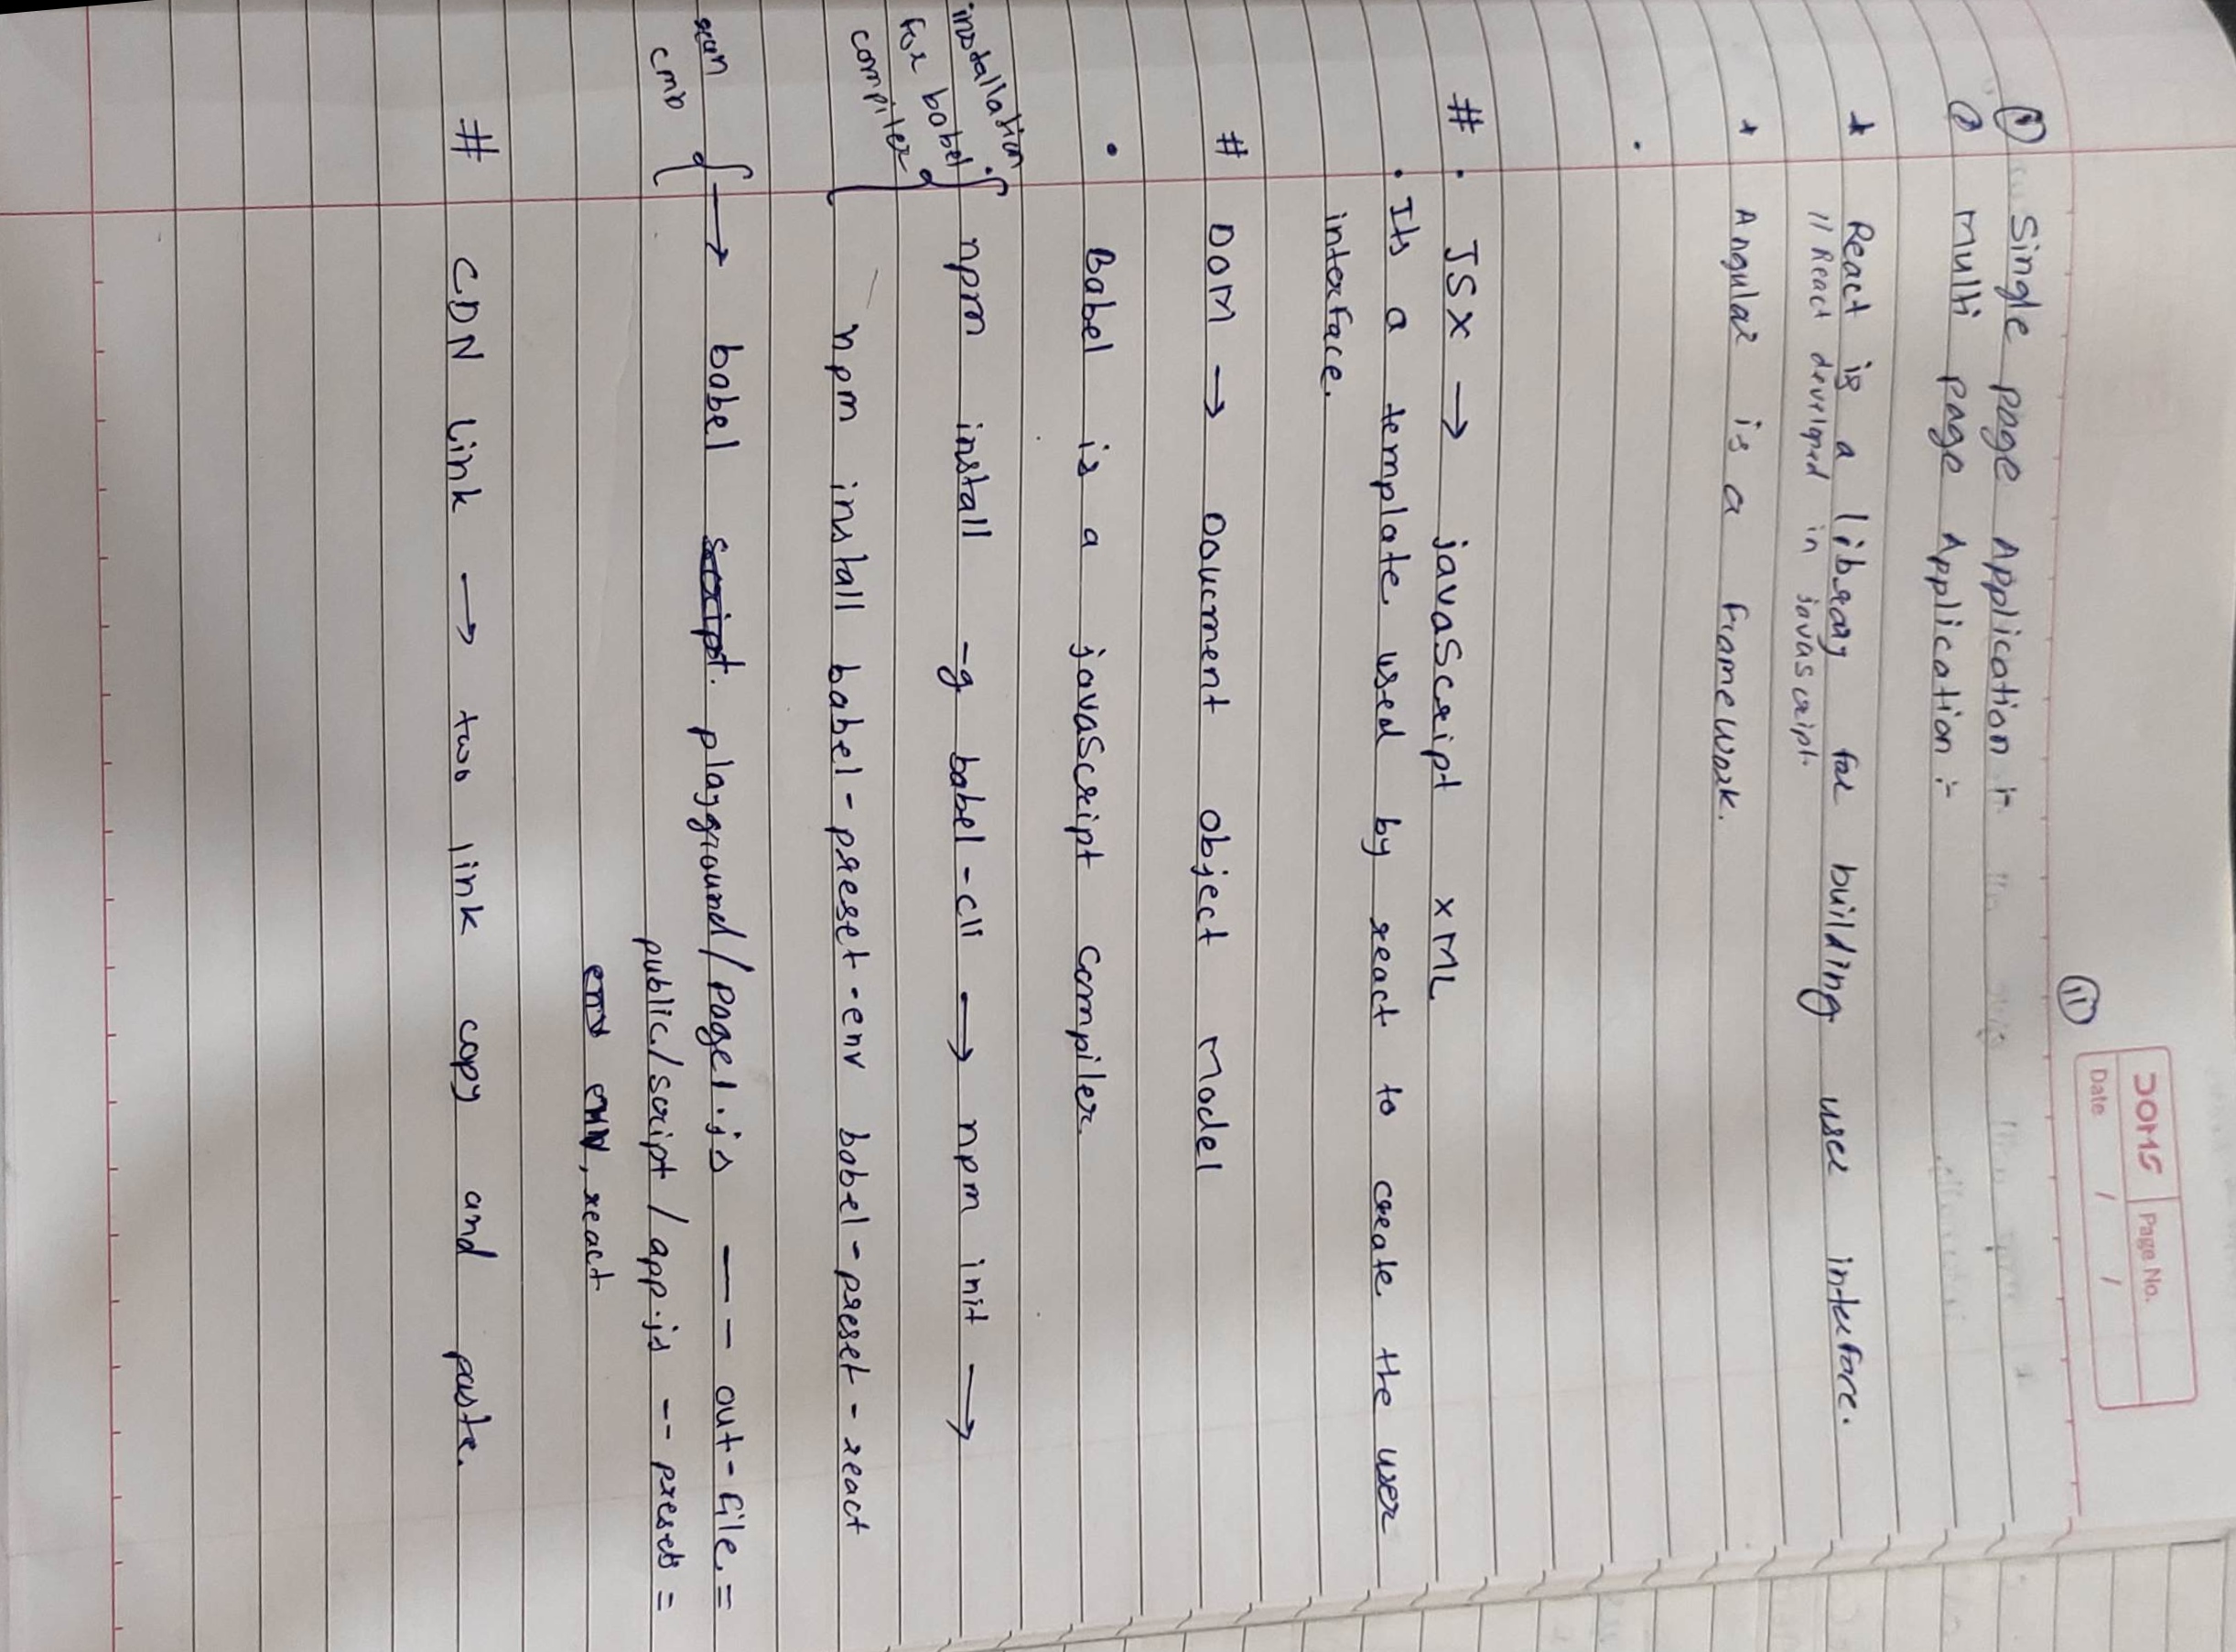 DOMS Page No.
Date / /
11
① Single page Application :-
② Multi page Application :-
* React is a library for building user interface.
// React developed in javascript.
* Angular is a Framework.
# • JSX → javaScript XML
• Its a template used by react to create the user
interface.
# DOM → Doucment Object Model
• Babel is a javaScript Compiler.
installation
for babel
compiler
npm install -g babel-cli → npm init →
npm install babel-preset-env babel-preset-react
run
cmb
→ babel script. playground/page1.js -- out-file =
public/script/app.js -- presets =
env env, react
# CDN Link → two link copy and paste.